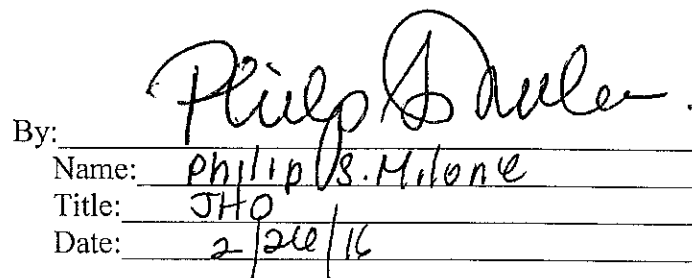 By: Philip S. Milone
Name: Philip S. Milone
Title: JHO
Date: 2/26/16